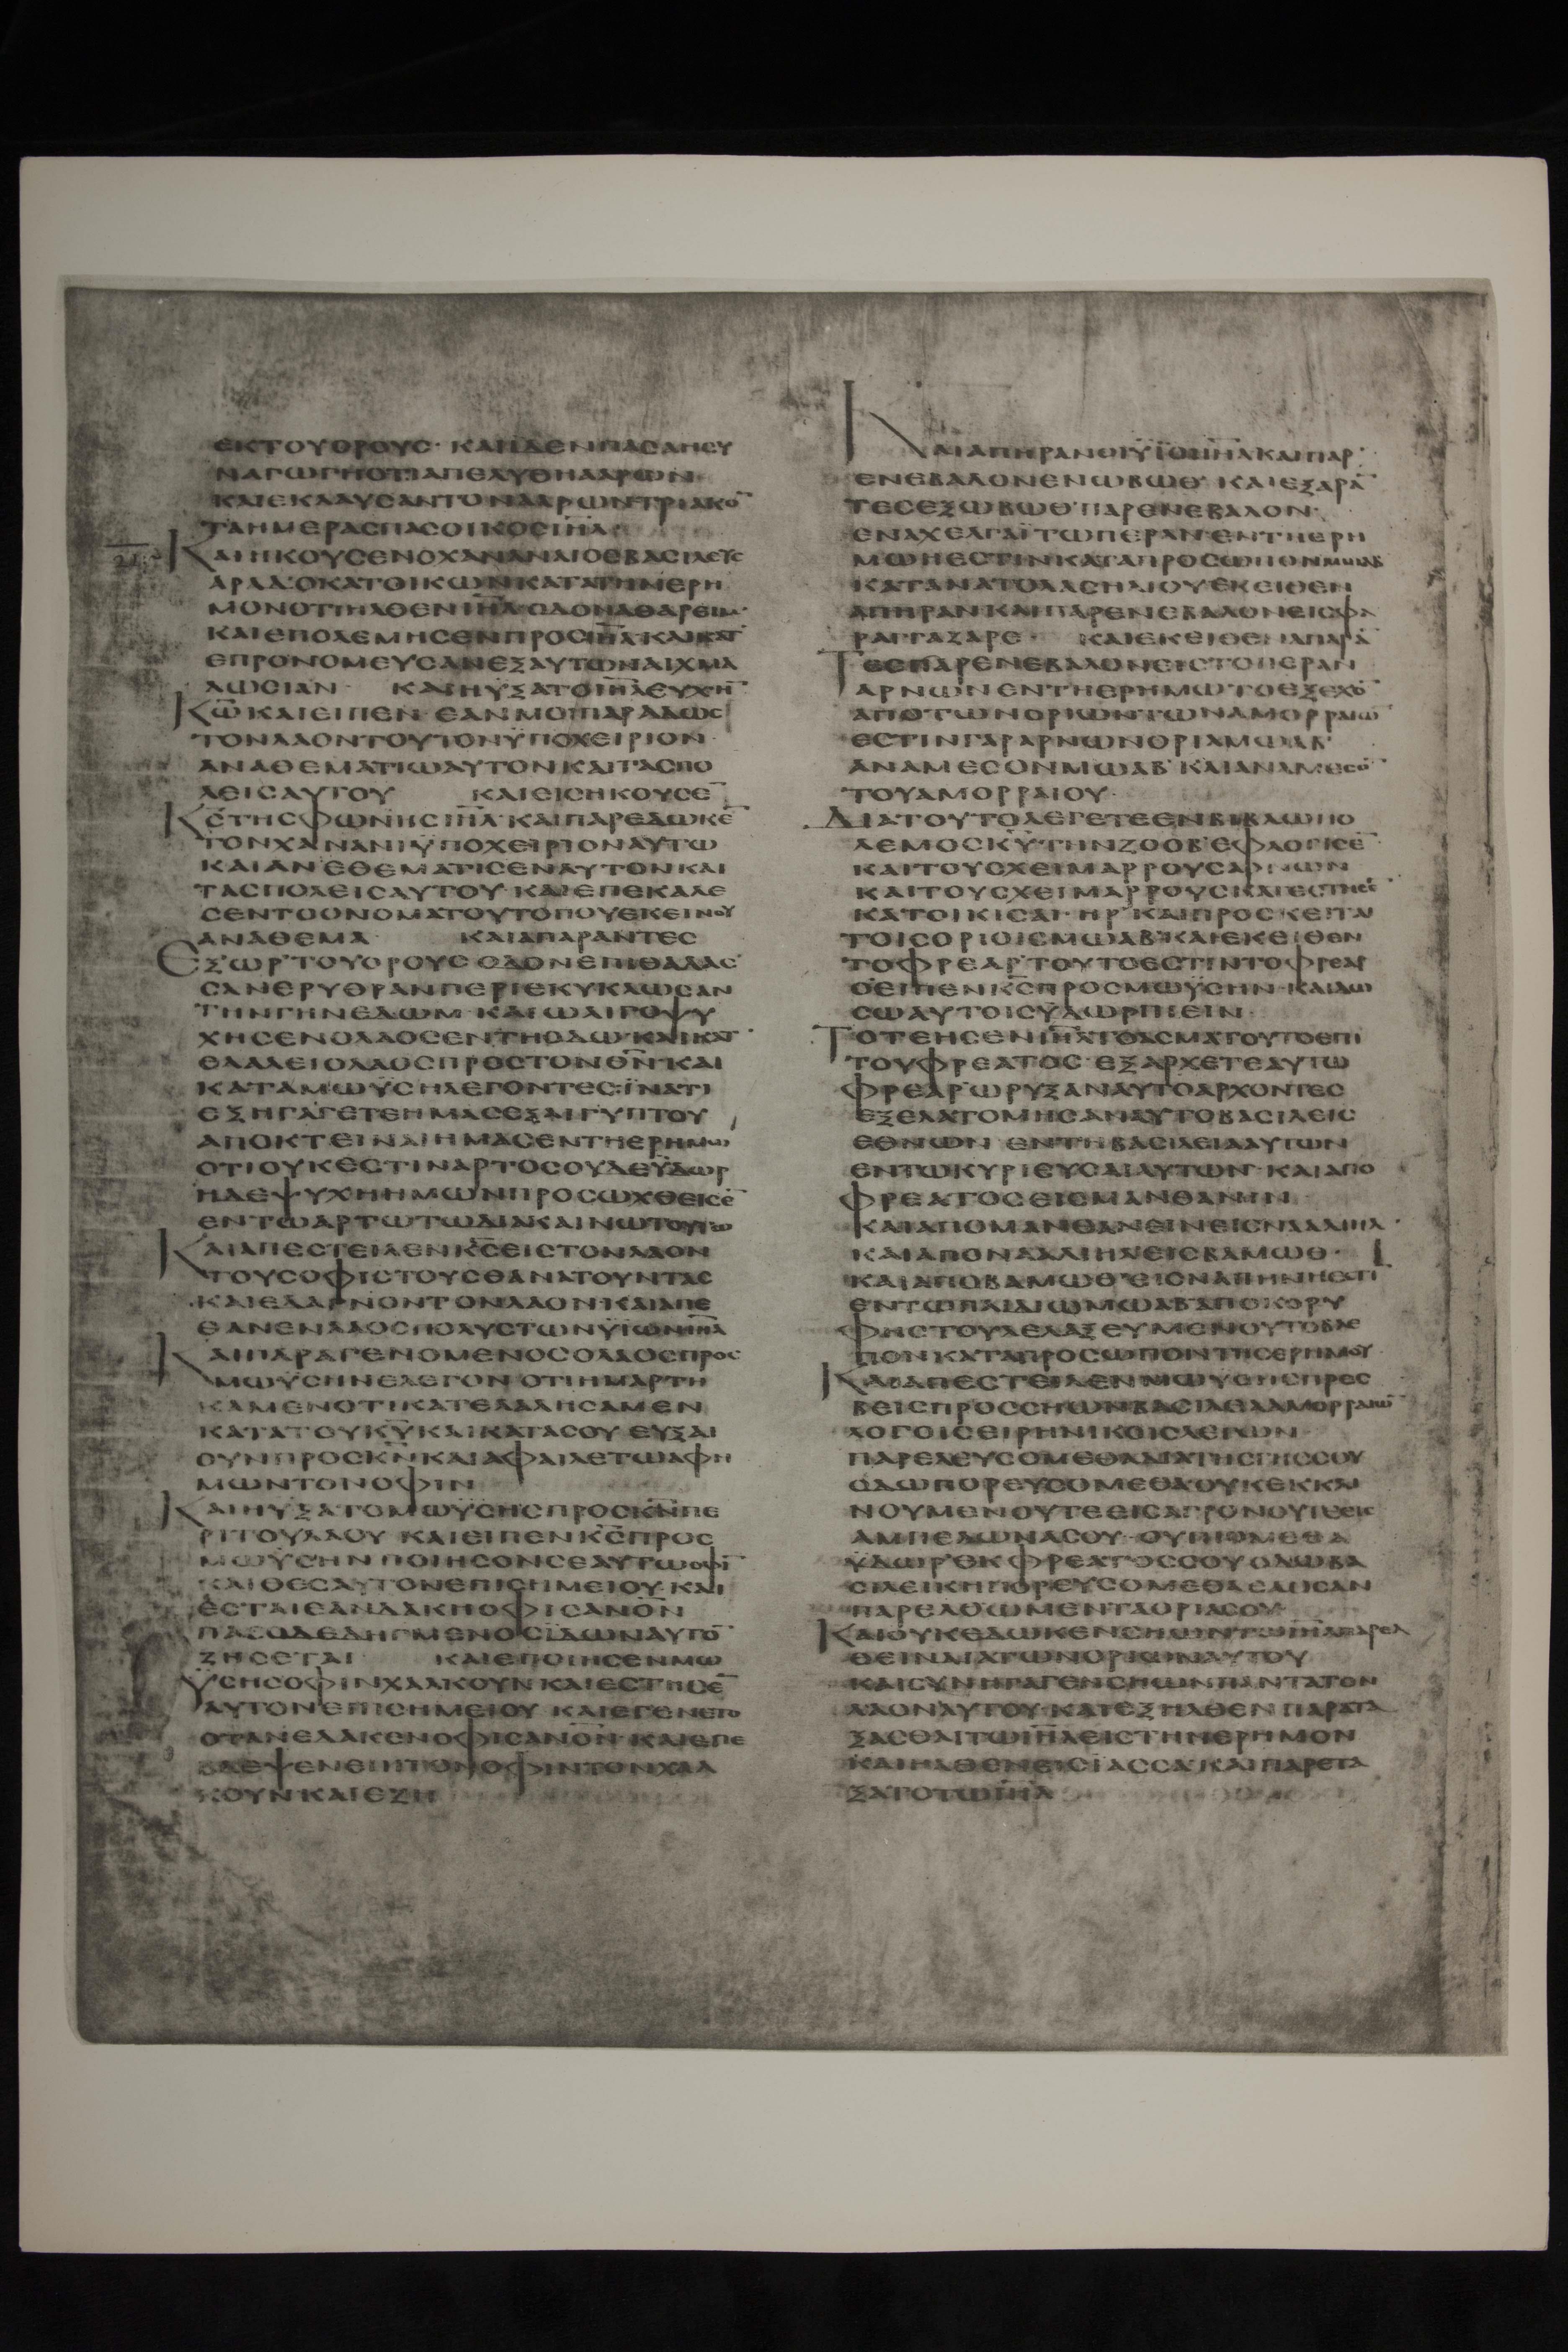 ΕΚΤΟΥΟΡΟΥΣ· ΚΑΙΙΔΕΝΠΑΣΑΗΣΥ
ΝΑΓΩΓΗΟΤΙΑΠΕΛΥΘΗΑΑΡΩΝ
ΚΑΙΕΚΛΑΥΣΑΝΤΟΝΑΑΡΩΝΤΡΙΑΚΟ̅
ΤΑΗΜΕΡΑΣΠΑΣΟΙΚΟΣΙ̅Η̅Λ̅
ΚΑΙΗΚΟΥΣΕΝΟΧΑΝΑΝΑΙΟΣΒΑΣΙΛΕΥΣ
ΑΡΑΔ᾿ΟΚΑΤΟΙΚΩΝΚΑΤΑΤΗΝΕΡΗ
ΜΟΝΟΤΙΗΛΘΕΝΙ̅Η̅Λ̅ΟΔΟΝΑΘΑΡΕΙΜ·
ΚΑΙΕΠΟΛΕΜΗΣΕΝΠΡΟΣΙ̅Η̅Λ̅ΚΑΙΚΑΤ
ΕΠΡΟΝΟΜΕΥΣΑΝΕΞΑΥΤΩΝΑΙΧΜΑ
ΛΩΣΙΑΝ· ΚΑΙΗΥΞΑΤΟΙ̅Η̅Λ̅ΕΥΧΗ̅
Κ̅Ω̅ΚΑΙΕΙΠΕΝ· ΕΑΝΜΟΙΠΑΡΑΔΩΣ
ΤΟΝΛΑΟΝΤΟΥΤΟΝΫΠΟΧΕΙΡΙΟΝ·
ΑΝΑΘΕΜΑΤΙΩΑΥΤΟΝΚΑΙΤΑΣΠΟ
ΛΕΙΣΑΥΤΟΥ ΚΑΙΕΙΣΗΚΟΥΣΕ̅
Κ̅Σ̅ΤΗΣΦΩΝΗΣΙ̅Η̅Λ̅·ΚΑΙΠΑΡΕΔΩΚΕ̅
ΤΟΝΧΑΝΑΝΙΫΠΟΧΕΙΡΙΟΝΑΥΤΩ
ΚΑΙΑΝΕΘΕΜΑΤΙΣΕΝΑΥΤΟΝΚΑΙ
ΤΑΣΠΟΛΕΙΣΑΥΤΟΥ·ΚΑΙΕΠΕΚΑΛΕ
ΣΕΝΤΟΟΝΟΜΑΤΟΥΤΟΠΟΥΕΚΕΙΝΟΥ
ΑΝΑΘΕΜΑ ΚΑΙΑΠΑΡΑΝΤΕΣ
ΕΞΩΡ᾿ΤΟΥΟΡΟΥΣΟΔΟΝΕΠΙΘΑΛΑΣ
ΣΑΝΕΡΥΘΡΑΝΠΕΡΙΕΚΥΚΛΩΣΑΝ
ΤΗΝΓΗΝΕΔΩΜ·ΚΑΙΩΛΙΓΟΨΥ
ΧΗΣΕΝΟΛΑΟΣΕΝΤΗΟΔΩ·ΚΑΙΚΑΤ
ΕΛΑΛΕΙΟΛΑΟΣΠΡΟΣΤΟΝΘ̅Ν̅ΚΑΙ
ΚΑΤΑΜΩΫΣΗΛΕΓΟΝΤΕΣ·ΪΝΑΤΙ
ΕΞΗΓΑΓΕΤΕΗΜΑΣΕΞΑΙΓΥΠΤΟΥ
ΑΠΟΚΤΕΙΝΑΙΗΜΑΣΕΝΤΗΕΡΗΜΩ
ΟΤΙΟΥΚΕΣΤΙΝΑΡΤΟΣΟΥΔΕΫΔΩΡ
ΗΔΕΨΥΧΗΗΜΩΝΠΡΟΣΩΧΘΕΙΣΕ̅
ΕΝΤΩΑΡΤΩΤΩΔΙΑΚΑΙΝΩΤΟΥΤΩ
ΚΑΙΑΠΕΣΤΕΙΛΕΝΚ̅Σ̅ΕΙΣΤΟΝΛΑΟΝ
ΤΟΥΣΟΦΙΣΤΟΥΣΘΑΝΑΤΟΥΝΤΑΣ
ΚΑΙΕΔΑΚΝΟΝΤΟΝΛΑΟΝΚΑΙΑΠΕ
ΘΑΝΕΝΛΑΟΣΠΟΛΥΣΤΩΝΫΙΩΝΙ̅Η̅Λ̅
ΚΑΙΠΑΡΑΓΕΝΟΜΕΝΟΣΟΛΑΟΣΠΡΟΣ
ΜΩΫΣΗΝΕΛΕΓΟΝ·ΟΤΙΗΜΑΡΤΗ
ΚΑΜΕΝΟΤΙΚΑΤΕΛΑΛΗΣΑΜΕΝ
ΚΑΤΑΤΟΥΚ̅Υ̅ΚΑΙΚΑΤΑΣΟΥ·ΕΥΞΑΙ
ΟΥΝΠΡΟΣΚ̅Ν̅ΚΑΙΑΦΑΙΛΕΤΩΑΦΗ
ΜΩΝΤΟΝΟΦΙΝ
ΚΑΙΗΥΞΑΤΟΜΩΫΣΗΣΠΡΟΣΚ̅Ν̅ΠΕ
ΡΙΤΟΥΛΑΟΥ·ΚΑΙΕΙΠΕΝΚ̅Σ̅ΠΡΟΣ
ΜΩΫΣΗΝ·ΠΟΙΗΣΟΝΣΕΑΥΤΩΟΦΙ̅
ΚΑΙΘΕΣΑΥΤΟΝΕΠΙΣΗΜΕΙΟΥ·ΚΑΙ
ΕΣΤΑΙΕΑΝΔΑΚΗΟΦΙΣΑΝΟ̅Ν̅
ΠΑΣΟΔΕΔΗΓΜΕΝΟΣΪΔΩΝΑΥΤΟ̅
ΖΗΣΕΤΑΙ ΚΑΙΕΠΟΙΗΣΕΝΜΩ
ΫΣΗΣΟΦΙΝΧΑΛΚΟΥΝΚΑΙΕΣΤΗΣΕ̅
ΑΥΤΟΝΕΠΙΣΗΜΕΙΟΥ·ΚΑΙΕΓΕΝΕΤΟ
ΟΤΑΝΕΔΑΚΕΝΟΦΙΣΑΝΟ̅Ν̅·ΚΑΙΕΠΕ
ΒΛΕΨΕΝΕΠΙΤΟΝΟΦΙΝΤΟΝΧΑΛ
ΚΟΥΝΚΑΙΕΖΗ
ΚΑΙΑΠΗΡΑΝΟΙΫΙΟΙΙ̅Η̅Λ̅ΚΑΙΠΑΡ᾿
ΕΝΕΒΑΛΟΝΕΝΩΒΩΘ᾿ ΚΑΙΕΞΑΡΑ̅
ΤΕΣΕΞΩΒΩΘ᾿ΠΑΡΕΝΕΒΑΛΟΝ·
ΕΝΑΧΕΛΓΑΪΤΩΠΕΡΑΝ·ΕΝΤΗΕΡΗ
ΜΩΗΕΣΤΙΝΚΑΤΑΠΡΟΣΩΠΟΝΜΩΑΒ
ΚΑΤΑΝΑΤΟΛΑΣΗΛΙΟΥ·ΕΚΕΙΘΕΝ
ΑΠΗΡΑΝΚΑΙΠΑΡΕΝΕΒΑΛΟΝΕΙΣΦΑ
ΡΑΓΓΑΖΑΡΕ· ΚΑΙΕΚΕΙΘΕΝΑΠΑΡΑ̅
ΤΕΣΠΑΡΕΝΕΒΑΛΟΝΕΙΣΤΟΠΕΡΑΝ
ΑΡΝΩΝΕΝΤΗΕΡΗΜΩ·ΤΟΕΞΕΧΟ̅
ΑΠΟΤΩΝΟΡΙΩΝΤΩΝΑΜΟΡΡΑΙΩ̅
ΕΣΤΙΝΓΑΡΑΡΝΩΝΟΡΙΑΜΩΑΒ᾿
ΑΝΑΜΕΣΟΝΜΩΑΒ᾿ΚΑΙΑΝΑΜΕΣΟ̅
ΤΟΥΑΜΟΡΡΑΙΟΥ·
ΔΙΑΤΟΥΤΟΛΕΓΕΤΕΕΝΒΙΒΛΩΠΟ
ΛΕΜΟΣΚ̅Υ̅·ΤΗΝΖΟΟΒ᾿ΕΦΛΟΓΙΣΕ̅
ΚΑΙΤΟΥΣΧΕΙΜΑΡΡΟΥΣΑΡΝΩΝ
ΚΑΙΤΟΥΣΧΕΙΜΑΡΡΟΥΣΚΑΤΕΣΤΗΣΕ̅
ΚΑΤΟΙΚΙΣΑΙ·ΗΡ᾿ΚΑΙΠΡΟΣΚΕΙΤΑΙ
ΤΟΙΣΟΡΙΟΙΣΜΩΑΒ᾿ΚΑΙΕΚΕΙΘΕΝ
ΤΟΦΡΕΑΡ᾿ΤΟΥΤΟΕΣΤΙΝΤΟΦΡΕΑΡ
ΟΕΙΠΕΝΚ̅Σ̅ΠΡΟΣΜΩΫΣΗΝ·ΚΑΙΔΩ
ΣΩΑΥΤΟΙΣΫΔΩΡΠΙΕΙΝ·
ΤΟΤΕΗΣΕΝΙ̅Η̅Λ̅ΤΟΑΣΜΑΤΟΥΤΟΕΠΙ
ΤΟΥΦΡΕΑΤΟΣ·ΕΞΑΡΧΕΤΕΑΥΤΩ
ΦΡΕΑΡ᾿ΩΡΥΞΑΝΑΥΤΟΑΡΧΟΝΤΕΣ
ΕΞΕΛΑΤΟΜΗΣΑΝΑΥΤΟΒΑΣΙΛΕΙΣ
ΕΘΝΩΝ ΕΝΤΗΒΑΣΙΛΕΙΑΑΥΤΩΝ
ΕΝΤΩΚΥΡΙΕΥΣΑΙΑΥΤΩΝ·ΚΑΙΑΠΟ
ΦΡΕΑΤΟΣΕΙΣΜΑΝΘΑΝΙΝ
ΚΑΙΑΠΟΜΑΝΘΑΝΕΙΝΕΙΣΝΑΑΛΙΗΛ·
ΚΑΙΑΠΟΝΑΑΛΙΗΛΕΙΣΒΑΜΩΘ·
ΚΑΙΑΠΟΒΑΜΩΘ᾿ΕΙΣΝΑΠΗΝΗΕΣΤΙ̅
ΕΝΤΩΠΑΙΔΙΩΜΩΑΒΑΠΟΚΟΡΥ
ΦΗΣΤΟΥΛΕΛΑΞΕΥΜΕΝΟΥΤΟΒΛΕ
ΠΟΝΚΑΤΑΠΡΟΣΩΠΟΝΤΗΣΕΡΗΜΟΥ
ΚΑΙΑΠΕΣΤΕΙΛΕΝΜΩΥΣΗΣΠΡΕΣ
ΒΕΙΣΠΡΟΣΣΗΩΝΒΑΣΙΛΕΑΑΜΟΡΡΑΙΩ̅
ΛΟΓΟΙΣΕΙΡΗΝΙΚΟΙΣΛΕΓΩΝ·
ΠΑΡΕΛΕΥΣΟΜΕΘΑΔΙΑΤΗΣΓΗΣΣΟΥ
ΟΔΩΠΟΡΕΥΣΟΜΕΘΑΟΥΚΕΚΚΛΙ
ΝΟΥΜΕΝΟΥΤΕΕΙΣΑΓΡΟΝΟΥΤΕΕΙΣ
ΑΜΠΕΛΩΝΑΣΟΥ·ΟΥΠΙΟΜΕΘΑ
ΫΔΩΡ᾿ΕΚΦΡΕΑΤΟΣΣΟΥ·ΟΔΩΒΑ
ΣΙΛΕΙΚΗΠΟΡΕΥΣΟΜΕΘΑΕΩΣΑΝ
ΠΑΡΕΛΘΩΜΕΝΤΑΟΡΙΑΣΟΥ·
ΚΑΙΟΥΚΕΔΩΚΕΝΣΗΩΝΤΩΙ̅Η̅Λ̅ΠΑΡΕΛ
ΘΕΙΝΔΙΑΤΩΝΟΡΙΩΝΑΥΤΟΥ
ΚΑΙΣΥΝΗΓΑΓΕΝΣΗΩΝΠΑΝΤΑΤΟΝ
ΛΑΟΝΑΥΤΟΥ·ΚΑΙΕΞΗΛΘΕΝΠΑΡΑΤΑ
ΞΑΣΘΑΙΤΩΙ̅Η̅Λ̅ΕΙΣΤΗΝΕΡΗΜΟΝ
ΚΑΙΗΛΘΕΝΕΙΣΪΑΣΣΑ·ΚΑΙΠΑΡΕΤΑ
ΞΑΤΟΤΩΙ̅Η̅Λ̅